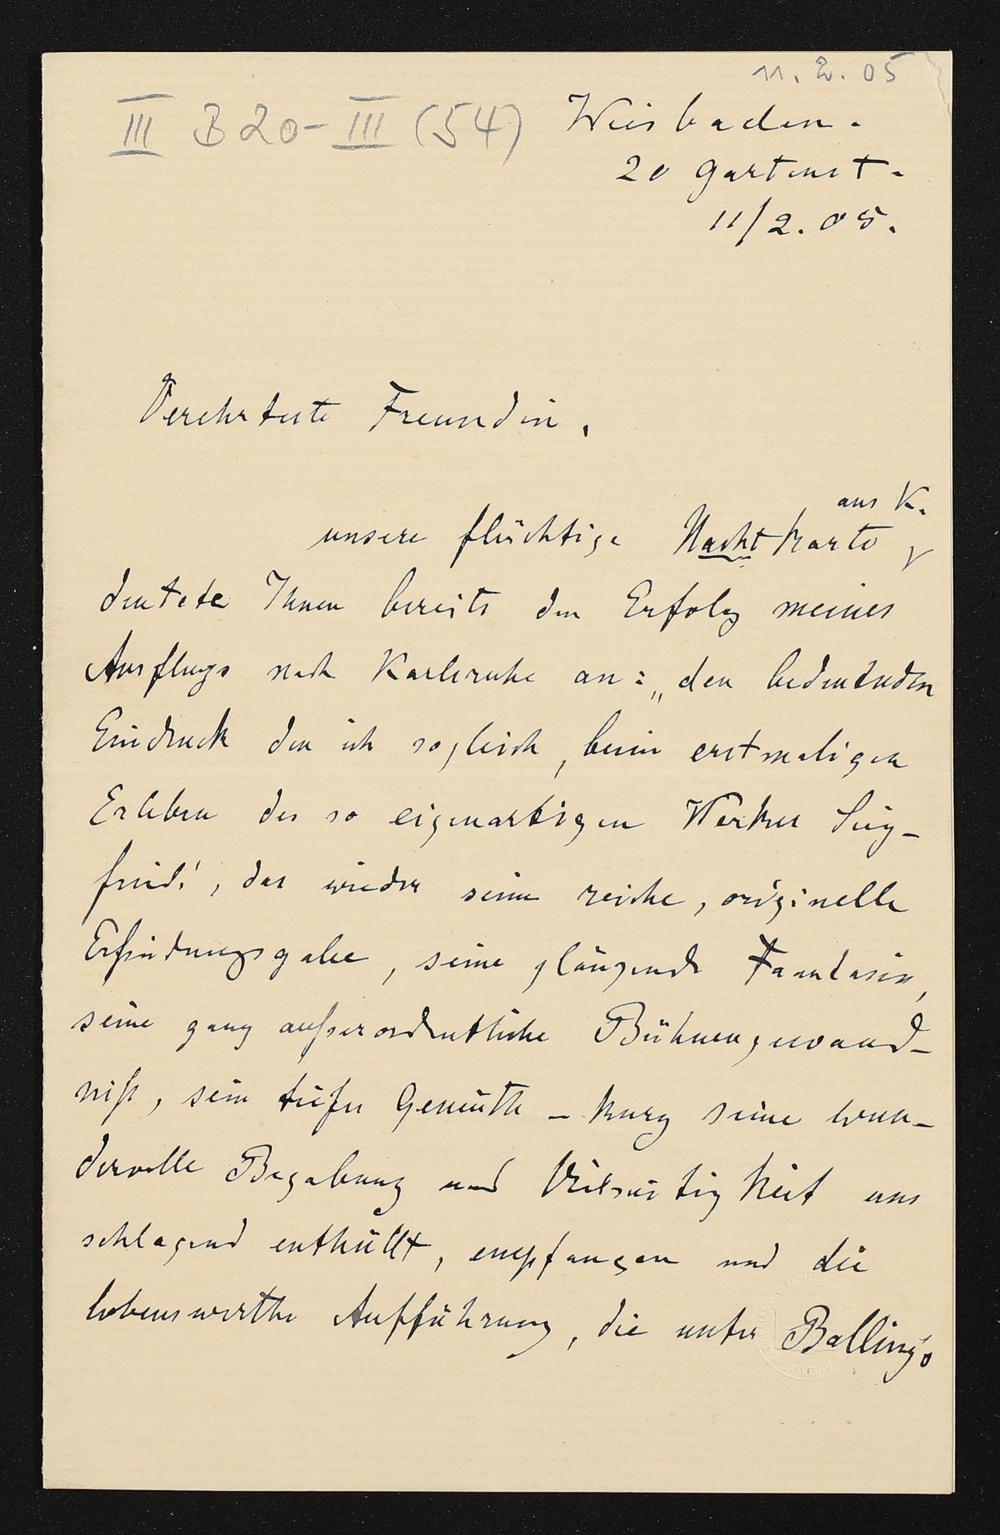 11. 2. 05
III B 20 - III (54)
Wiesbaden.
20 Gartenst.
11/2. 05.
Verehrteste Freundin,
aus K.
unsere flüchtige Nachtkarte
deutete Ihnen bereits den Erfolg meines
Ausflugs nach Karlsruhe an: „den bedeutenden
Eindruck den ich sogleich, beim erstmaligen
Erleben des so eigenartigen Werkes Sieg-
frieds', das wieder seine reiche, originelle
Erfindungsgabe, seine glänzende Fantasie,
seine ganz außerordentliche Bühnengewand-
niß, sein tiefes Gemüth – kurz seine wun-
dervolle Begabung und Vielseitigkeit uns
schlagend enthüllt, empfangen und die
lobenswerthe Aufführung, die unter Balling's